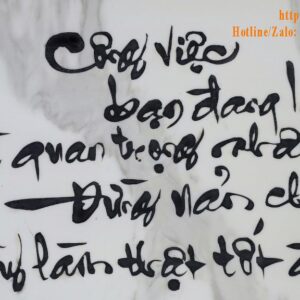 http
Hotline/Zalo:
Công việc
bạn đang
quan trọng
Đừng nản
làm thật tốt